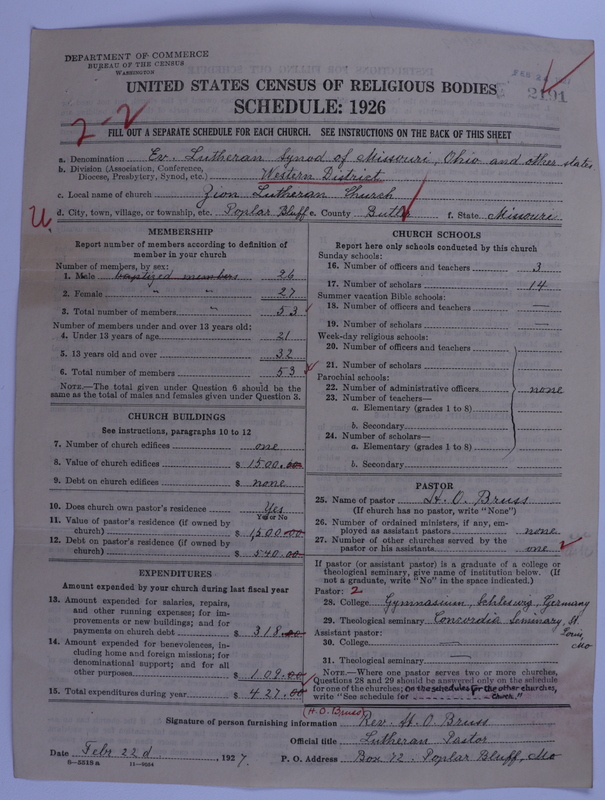 DEPARTMENT OF COMMERCE
BUREAU OF THE CENSUS
WASHINGTON
2191
UNITED STATES CENSUS OF RELIGIOUS BODIES
SCHEDULE: 1926
2-2
FILL OUT A SEPARATE SCHEDULE FOR EACH CHURCH. SEE INSTRUCTIONS ON THE BACK OF THIS SHEET
a. Denomination Ev. Lutheran Synod of Missouri, Ohio and other states
b. Division (Association, Conference, Diocese, Presbytery, Synod, etc.) Western District
c. Local name of church Zion Lutheran Church
d. City, town, village, or township, etc. Poplar Bluff e. County Butler f. State Missouri
MEMBERSHIP
Report number of members according to definition of
member in your church
Number of members, by sex:
1. Male baptized members 26
2. Female " " 27
3. Total number of members " 53
Number of members under and over 13 years old:
4. Under 13 years of age 21
5. 13 years old and over 32
6. Total number of members 53
NOTE.—The total given under Question 6 should be the
same as the total of males and females given under Question 3.
CHURCH BUILDINGS
See instructions, paragraphs 10 to 12
7. Number of church edifices one
8. Value of church edifices $ 1500.00
9. Debt on church edifices $ none
10. Does church own pastor's residence Yes
Yes or No
11. Value of pastor's residence (if owned by
church) $ 1,500.00
12. Debt on pastor's residence (if owned by
church) $ 540.00
EXPENDITURES
Amount expended by your church during last fiscal year
13. Amount expended for salaries, repairs,
and other running expenses; for im-
provements or new buildings; and for
payments on church debt $ 318.00
14. Amount expended for benevolences, in-
cluding home and foreign missions; for
denominational support; and for all
other purposes $ 109.00
15. Total expenditures during year $ 427.00
CHURCH SCHOOLS
Report here only schools conducted by this church
Sunday schools:
16. Number of officers and teachers 3
17. Number of scholars 14
Summer vacation Bible schools:
18. Number of officers and teachers —
19. Number of scholars —
Week-day religious schools:
20. Number of officers and teachers
21. Number of scholars
Parochial schools:
22. Number of administrative officers none
23. Number of teachers—
a. Elementary (grades 1 to 8)
b. Secondary
24. Number of scholars—
a. Elementary (grades 1 to 8)
b. Secondary
PASTOR
25. Name of pastor H. O. Bruss
(If church has no pastor, write "None")
26. Number of ordained ministers, if any, em-
ployed as assistant pastors none
27. Number of other churches served by the
pastor or his assistants one
If pastor (or assistant pastor) is a graduate of a college or
theological seminary, give name of institution below. (If
not a graduate, write "No" in the space indicated.)
Pastor: 2
28. College Gymnasium, Schleswig, Germany
29. Theological seminary Concordia Seminary, St. Louis, Mo
Assistant pastor:
30. College —
31. Theological seminary —
NOTE.—Where one pastor serves two or more churches,
Questions 28 and 29 should be answered only on the schedule
for one of the churches; on the schedules for the other churches,
write "See schedule for Church."
(H.O. Bruss)
Signature of person furnishing information Rev. H. O. Bruss
Official title Lutheran Pastor
Date Febr 22d, 1927. P. O. Address Box 72. Poplar Bluff, Mo
8-5518a 11-9064